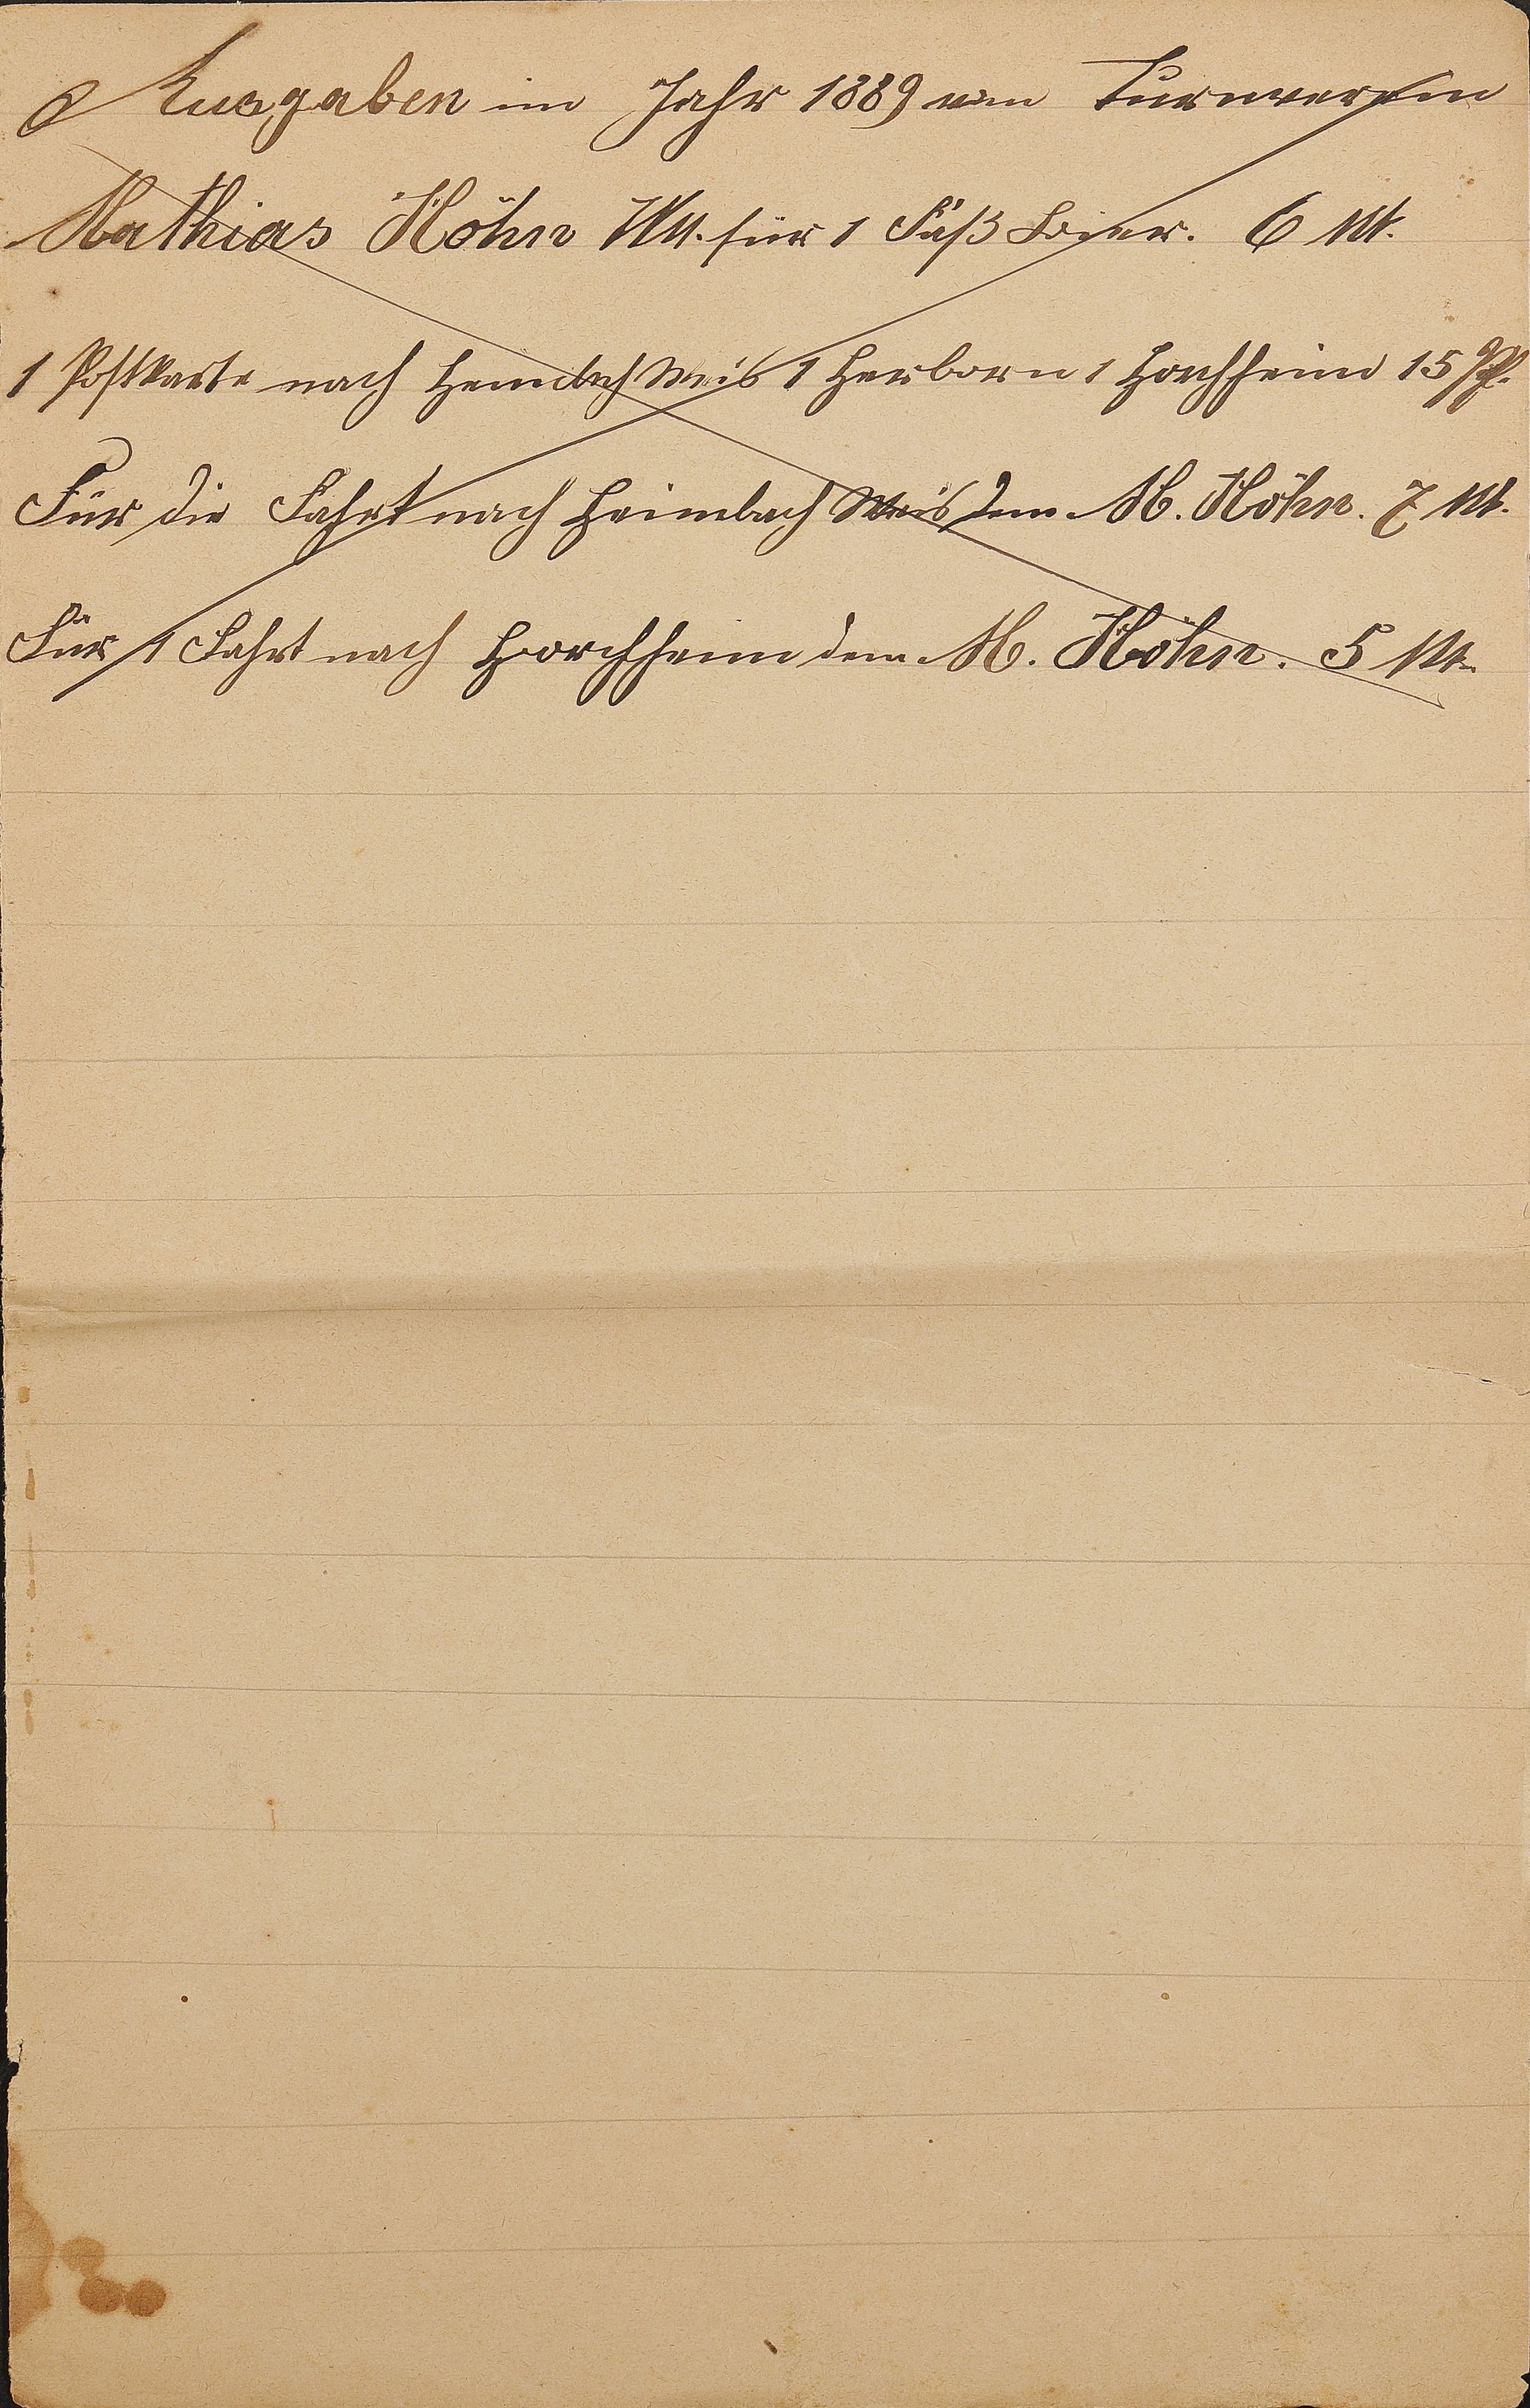 Ausgaben im Jahr 1889 vom Turnverein
Mathias Höhn III. für 1 Faß Bier. 6 M.
1 Postkarte nach Heimbach Weis 1 Herborn 1 Horchheim 15 Pf.
Für die Fahrt nach Heimbach Weis dem M. Höhn. 7 M.
Für 1 Fahrt nach Horchheim dem M. Höhn. 5 M.